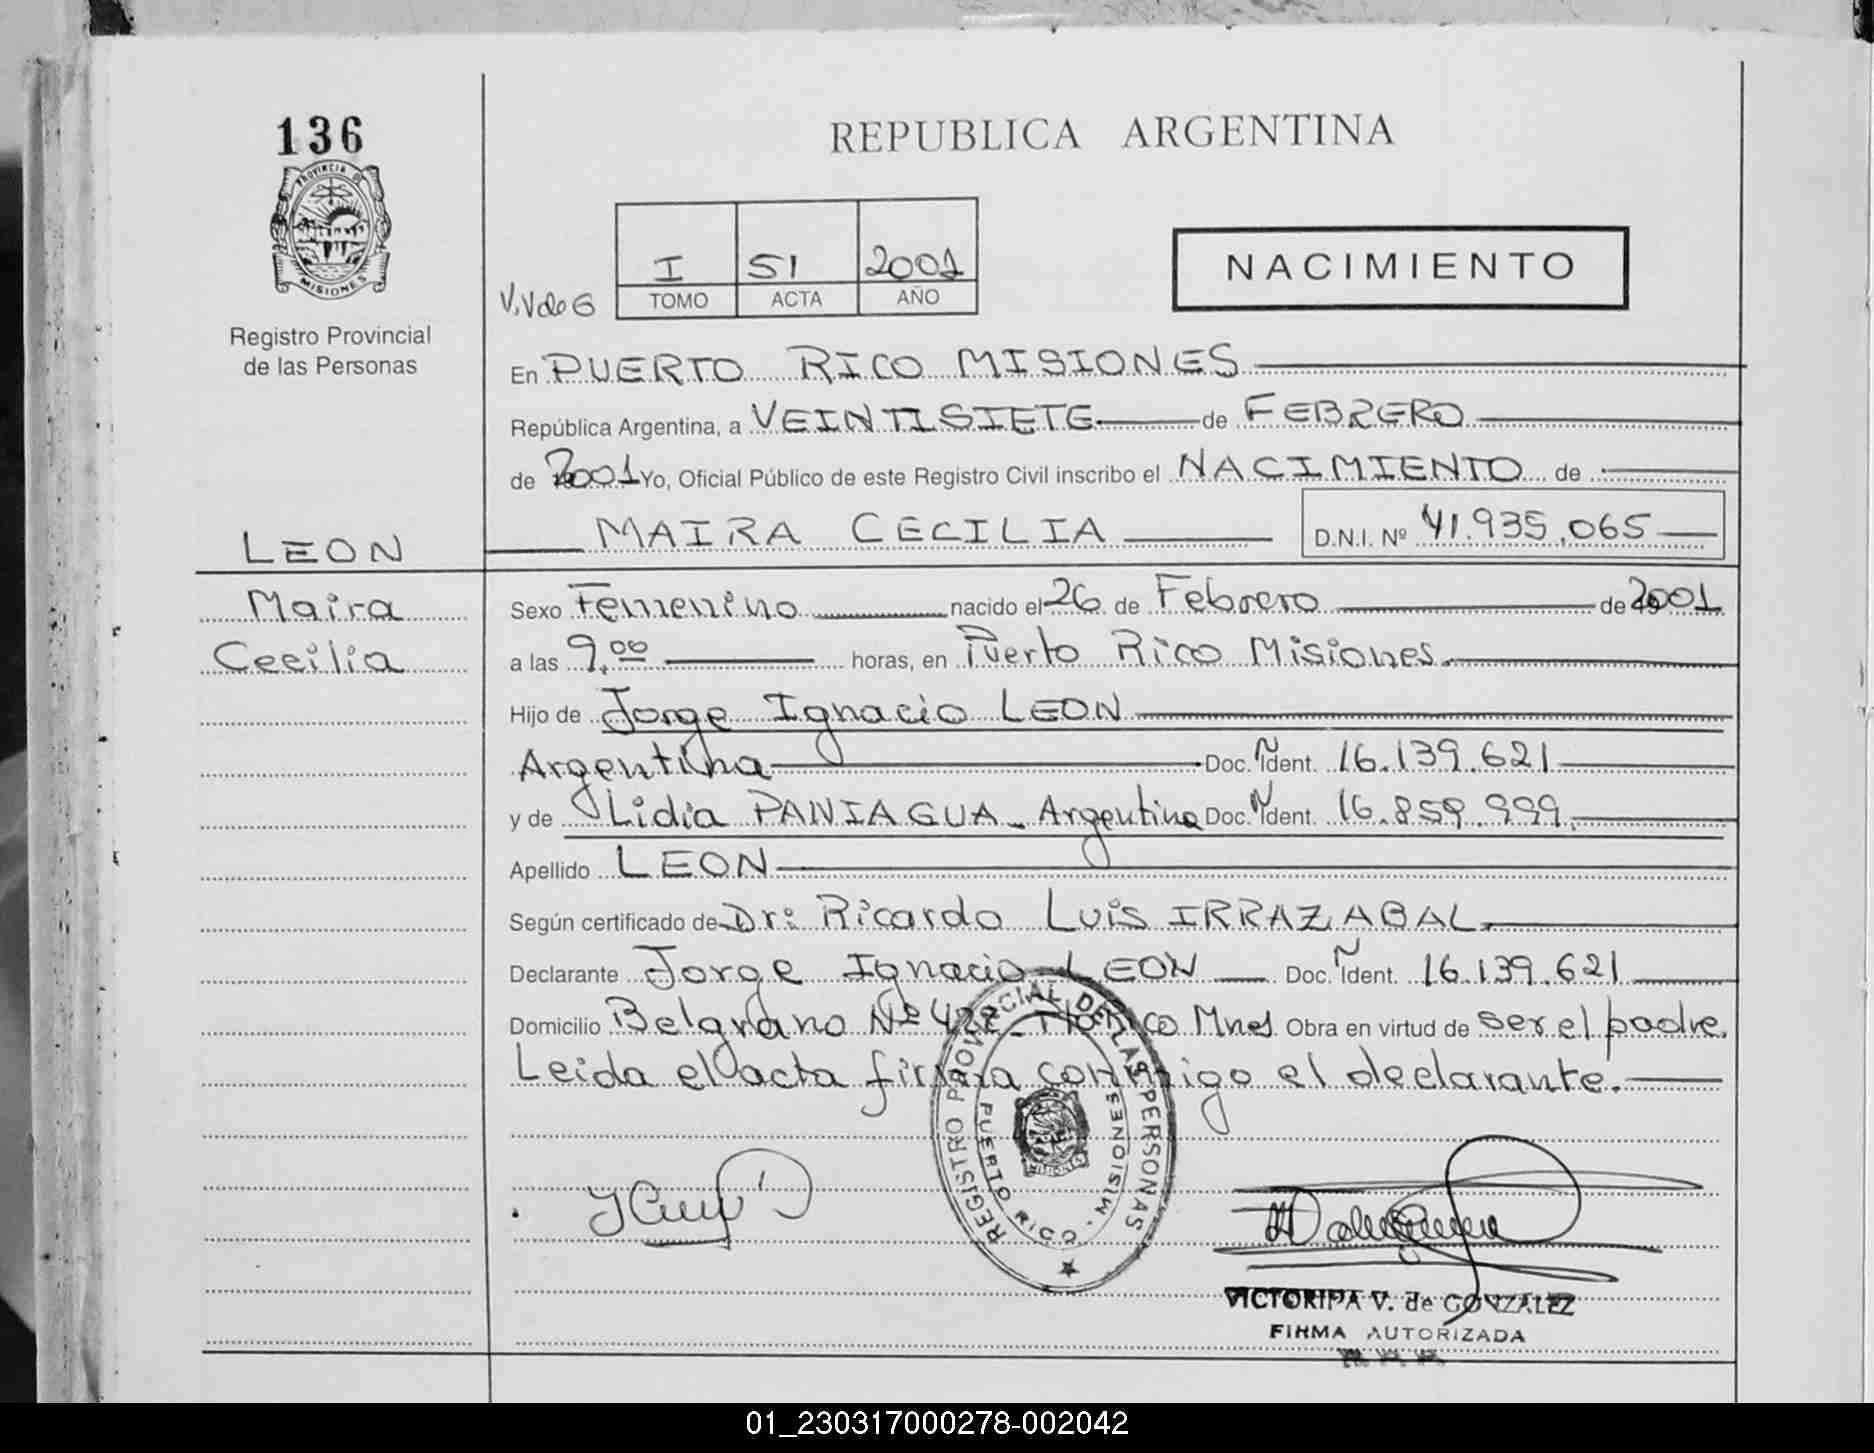 136
REPUBLICA ARGENTINA
PROVINCIA DE
MISIONES
Registro Provincial
de las Personas
V.V de G
I 51 2001
TOMO ACTA AÑO
NACIMIENTO
En PUERTO RICO MISIONES
República Argentina, a VEINTISIETE de FEBRERO
de 2001 Yo, Oficial Público de este Registro Civil inscribo el NACIMIENTO de
LEON
MAIRA CECILIA
D.N.I. Nº 41.935.065
Maira
Cecilia
Sexo Femenino nacido el 26 de Febrero de 2001
a las 9,00 horas, en Puerto Rico Misiones.
Hijo de Jorge Ignacio LEON
Argentina Doc. Ident. 16.139.621
y de Lidia PANIAGUA - Argentina Doc. Ident. 16.859.999.
Apellido LEON
Según certificado de Dr: Ricardo Luis IRRAZABAL.
Declarante Jorge Ignacio LEON Doc. Ident. 16.139.621
Domicilio Belgrano Nº Rico Mnes Obra en virtud de ser el padre.
Leida el acta firma conmigo el declarante.
REGISTRO PROVINCIAL DE LAS PERSONAS
PUERTO RICO - MISIONES
MISIONES
VICTORIPA V. de GONZALEZ
FIRMA AUTORIZADA
01_230317000278-002042